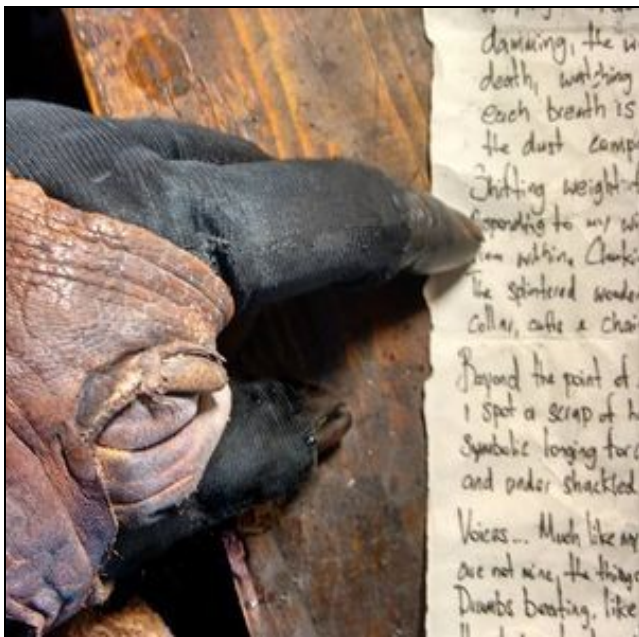 damning, the w
death, watching
each breath is
the dust comp
Shifting weight
to my w
within. Clanki
The splintered wooden
collar, cuffs & chai
Beyond the point of
I spot a scrap of h
Symbolic longing forc
and under shackled
Voices... Much like my
are not mine, the things
beating, like